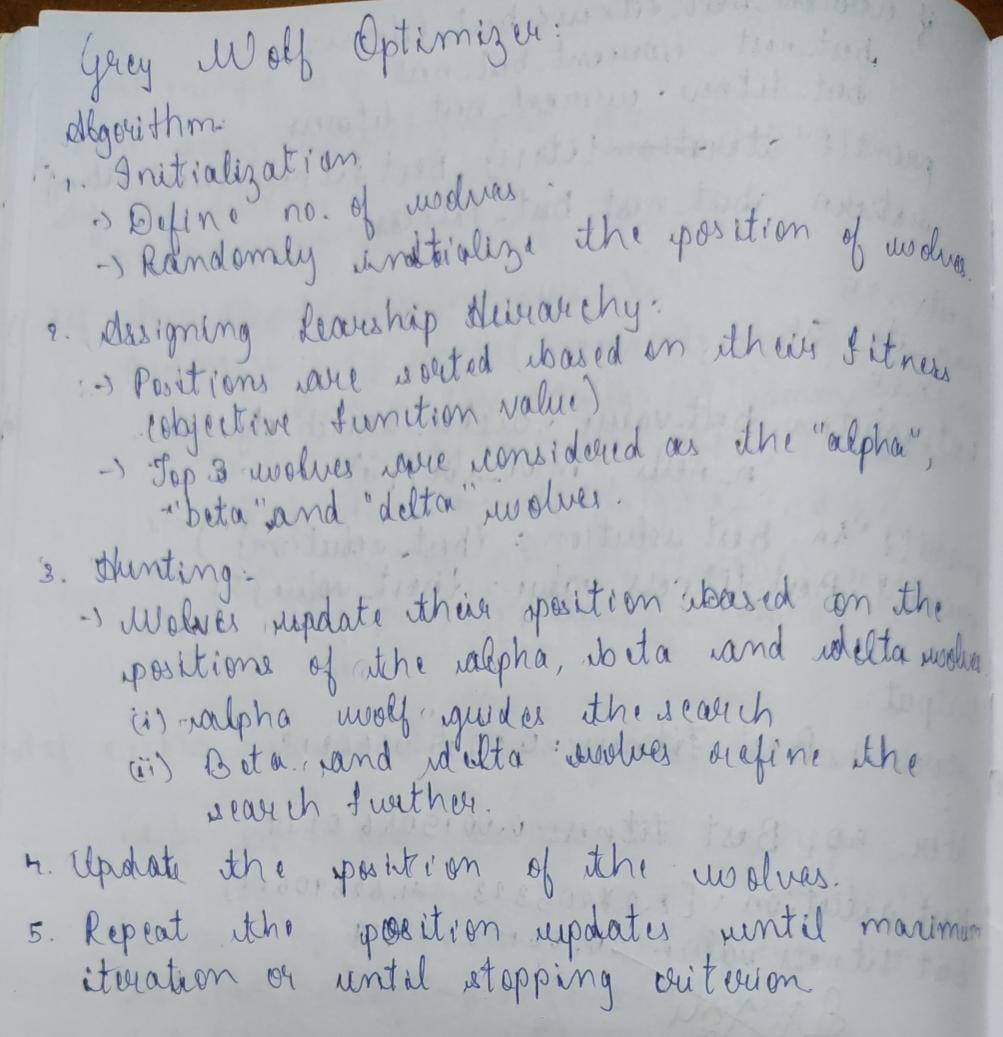 Grey Wolf Optimizer:
Algorithm:
1. Initialization
→ Define no. of wolves
→ Randomly initialize the position of wolves.
2. Assigning Learship Heirarchy:
→ Positions are sorted based on their fitness
(objective function value)
→ Top 3 wolves are considered as the "alpha",
"beta" and "delta" wolves.
3. Hunting:-
→ Wolves update their position based on the
positions of the alpha, beta and delta wolves
(i) alpha wolf guides the search
(ii) Beta and delta wolves refine the
search further.
4. Update the position of the wolves.
5. Repeat the position updates until maximum
iteration or until stopping criterion